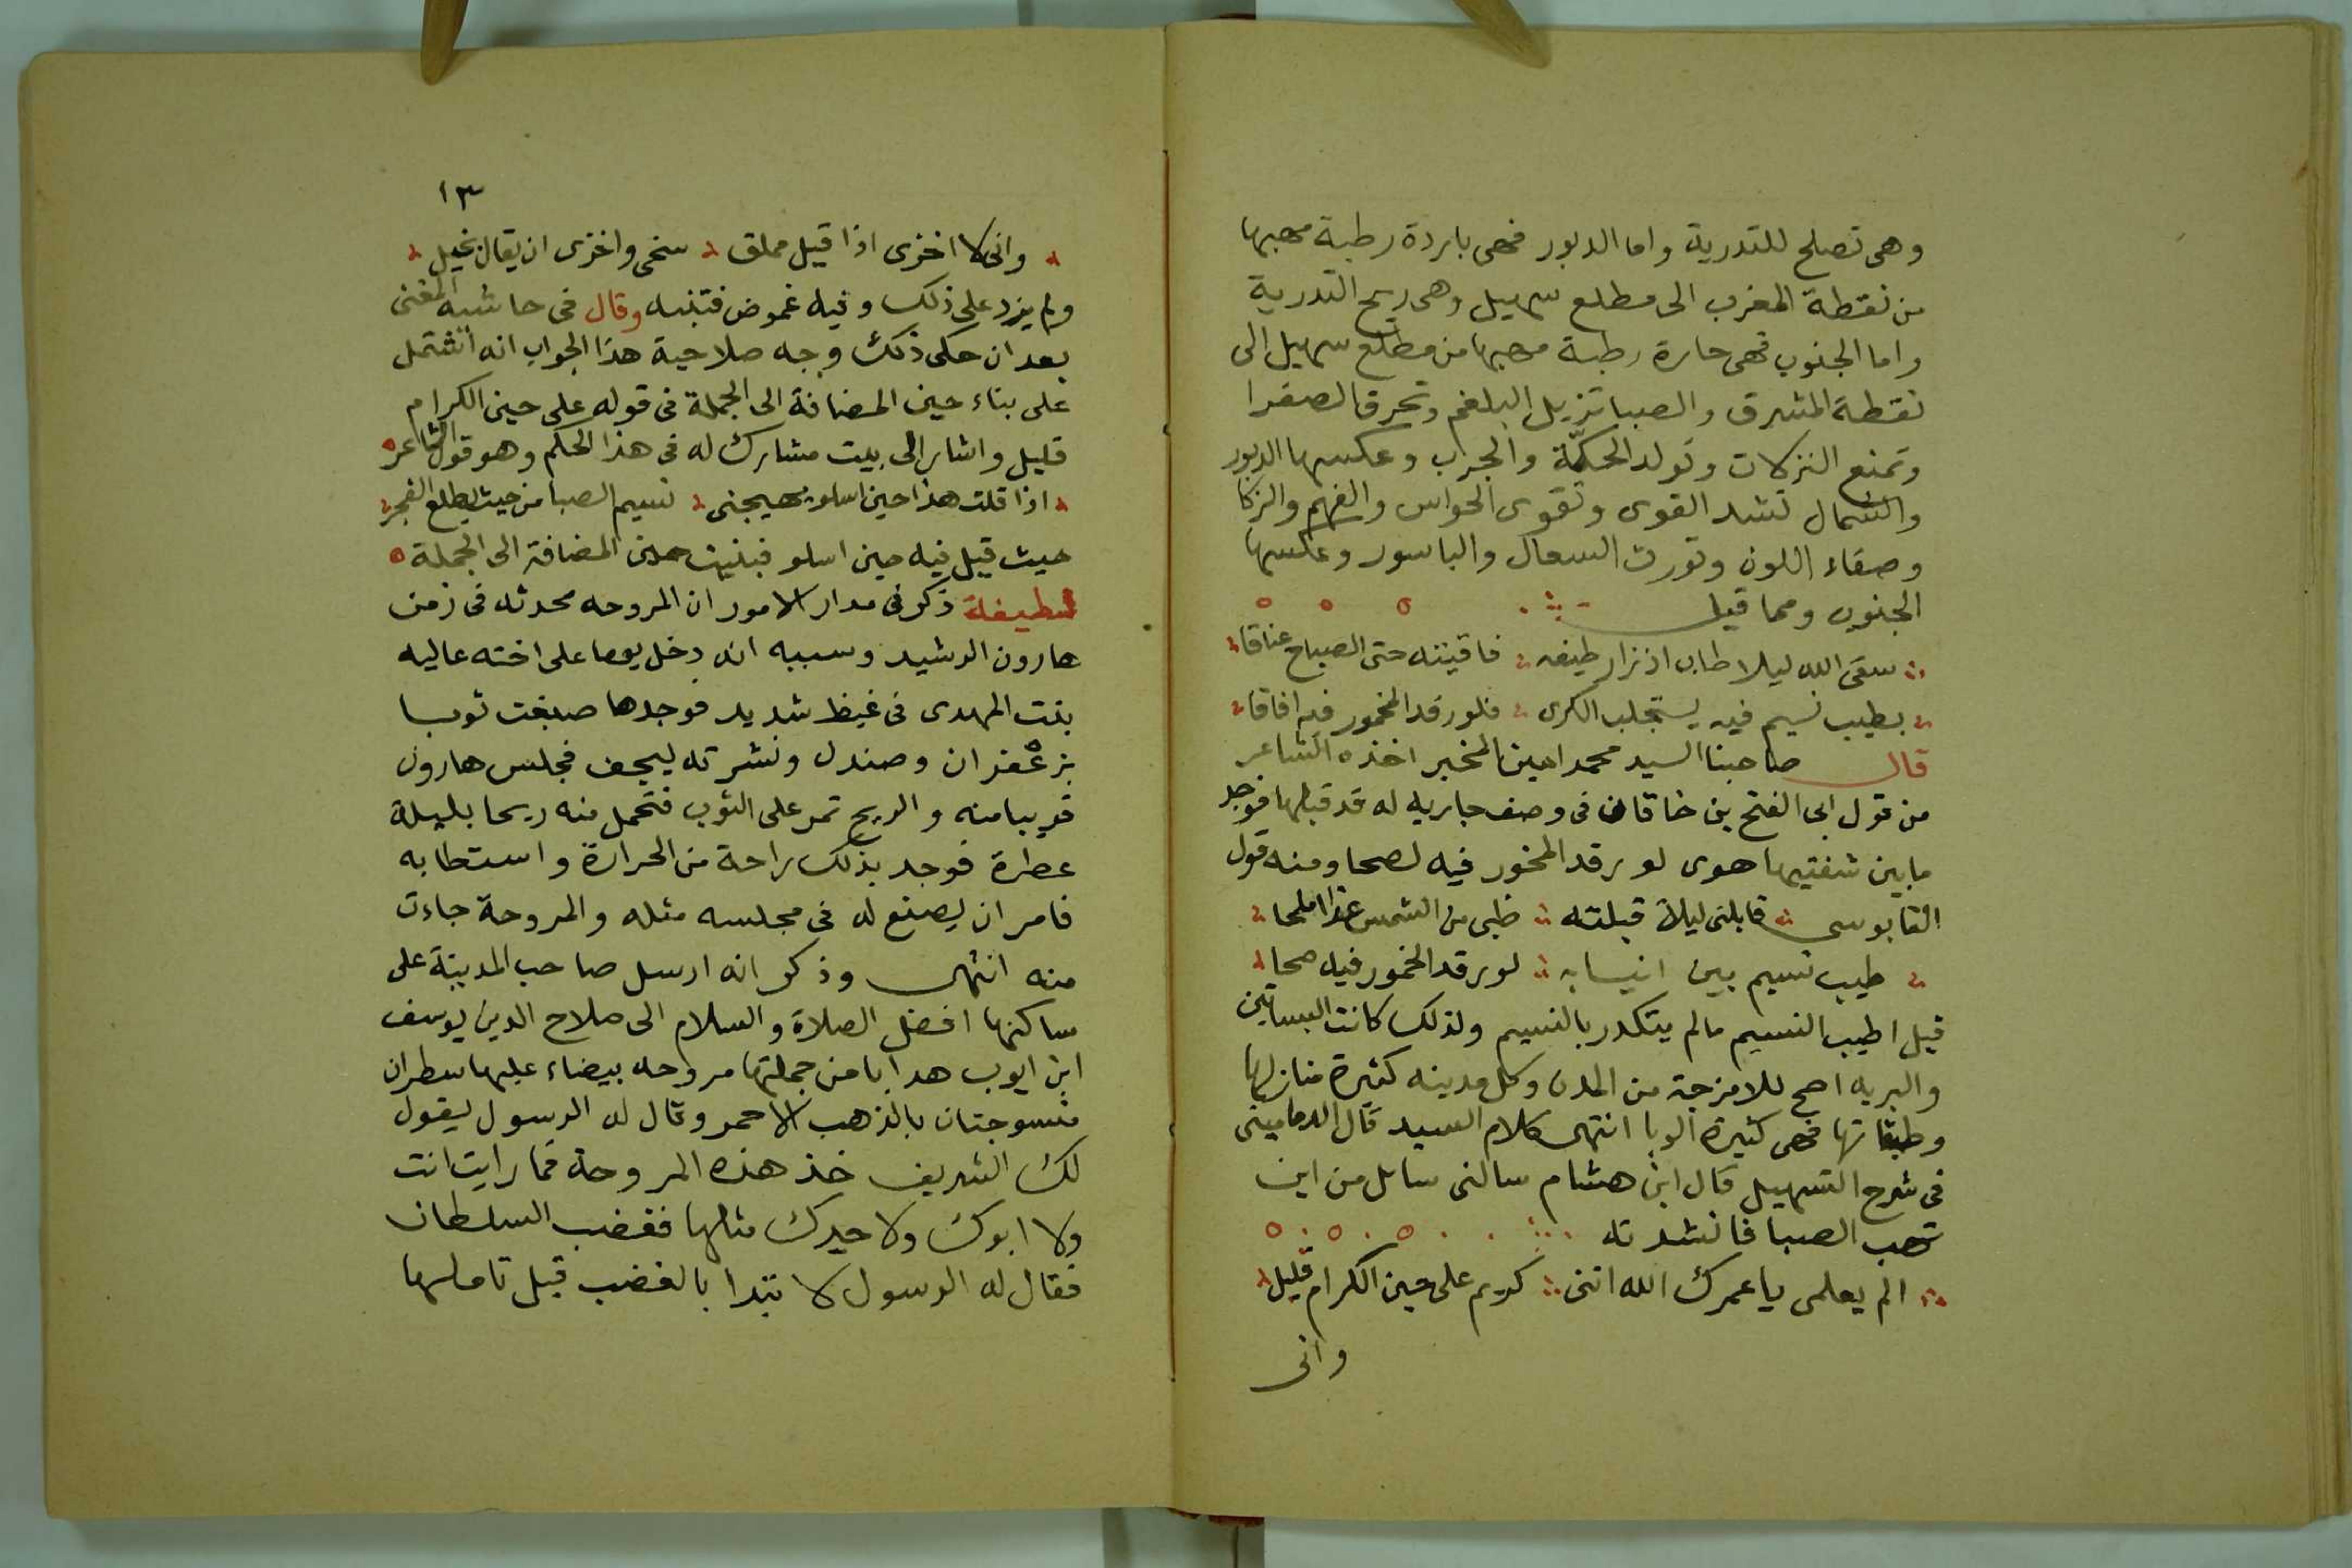 وهى تصلح للتدرية واما الدبور فهى باردة رطبة مهبها
من نقطة المغرب الى مطلع سهيل وهى ريح التدرية
واما الجنوب فهى حارة رطبة مهبها من مطلع سهيل الى
نقطة المشرق والصبا تزيل البلغم وتحرق الصفرا
وتمنع النزلات وتولد الحكّة والجرب وعكسها الدبور
والشمال تشد القوى وتقوى الحواس والفهم والزكا
وصفاء اللون وتورث السعال والباسور وعكسها
الجنوب ومما قيل
سقى الله ليلا طاب اذ زار طيفه فافنيته حتى الصباح عناقا
بطيب نسيم فيه يستجلب الكرى فلو رقد المخمور فيه افاقا
قال صاحبنا السيد محمد امين المخبر اخذه الشاعر
من قول ابى الفتح بن خاقان فى وصف جاريه له قد قبلها فوجد
ما بين شفتيها هوى لو رقد المخور فيه لصحا ومنه قول
القابوسى قابلنى ليلة قبلته ظبى من الشمس غدا املحا
طيب نسيم بين انيابه لو رقد المخمور فيه صحا
قيل اطيب النسيم مالم يتكدر بالنسيم ولذلك كانت البساتين
والبريه اصح للامزجة من المدن وكل مدينه كثيرة منازلها
وطبقاتها فهى كثيرة الوبا انتهى كلام السيد قال الدمامينى
فى شرح التسهيل قال ابن هشام سالنى سائل من اين
تهب الصبا فانشدته
الم يعلمى يا عمرك الله اننى كريم على حين الكرام قليل
وانى
١٣
وانى لا اخزى اذا قيل مملق سخى واخزى ان يقال بخيل
ولم يزد على ذلك وفيه غموض فتنبه وقال فى حاشية المغنى
بعد ان حكى ذلك وجه صلاحية هذا الجواب انه اشتمل
على بناء حين المضافة الى الجملة فى قوله على حين الكرام
قليل واشار الى بيت مشارك له فى هذا الحكم وهو قول الشاعر
اذا قلت هذا حين اسلو يهيجنى نسيم الصبا من حيث يطلع الفجر
حيث قيل فيه حين اسلو فبنيت حين المضافة الى الجملة
لطيفة ذكر فى مدار الامور ان المروحه محدثه فى زمن
هارون الرشيد وسببه انه دخل يوما على اخته عاليه
بنت المهدى فى غيظ شديد فوجدها صبغت ثوبا
بزعفران وصندل ونشرته ليجف فجلس هارون
قريبا منه والريح تمر على الثوب فتحمل منه ريحا بليلة
عطرة فوجد بذلك راحة من الحرارة واستطابه
فامر ان يصنع له فى مجلسه مثله والمروحة جاءت
منه انتهى وذكر انه ارسل صاحب المدينة على
ساكنها افضل الصلاة والسلام الى صلاح الدين يوسف
ابن ايوب هدايا من جملتها مروحه بيضاء عليها سطران
منسوجتان بالذهب الاحمر وقال له الرسول يقول
لك الشريف خذ هذه المروحة فما رايت انت
ولا ابوك ولا جدك مثلها فغضب السلطان
فقال له الرسول لا تبدا بالغضب قبل تاملها